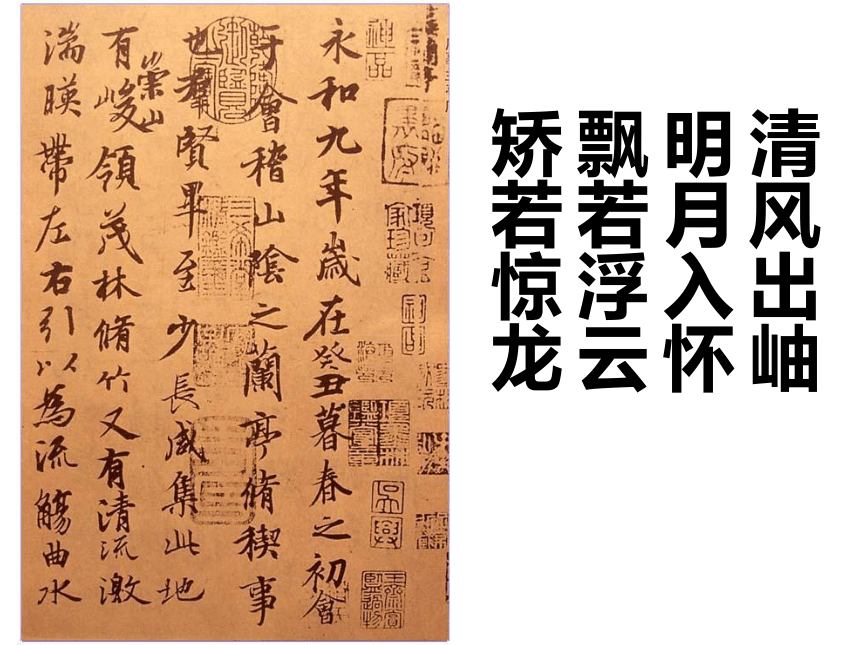 清风出岫
明月入怀
飘若浮云
矫若惊龙
永和九年歲在癸丑暮春之初會
于會稽山陰之蘭亭脩稧事
也羣賢畢至少長咸集此地
有崇山峻領茂林脩竹又有清流激
湍暎帶左右引以為流觴曲水